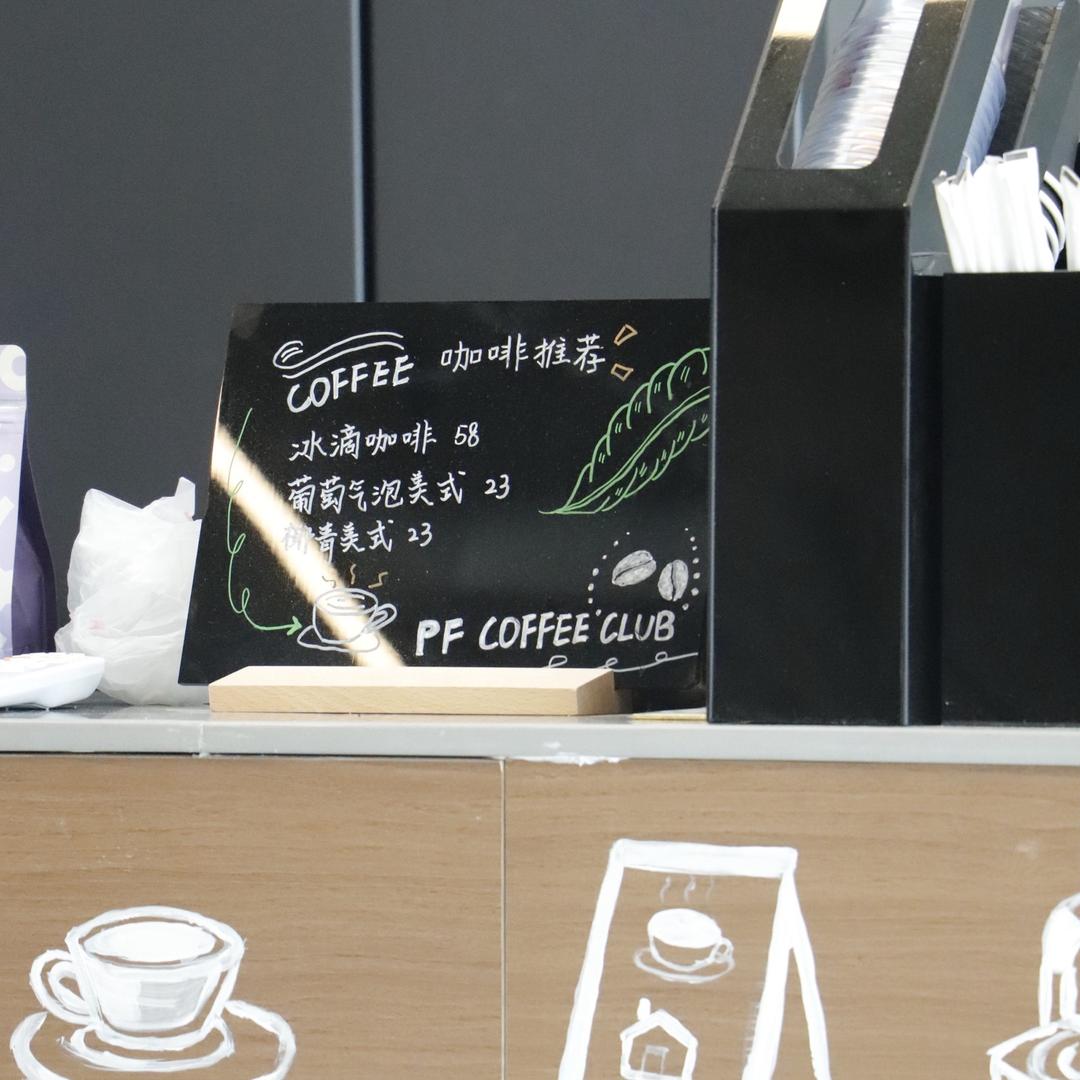 COFFEE 咖啡推荐
冰滴咖啡 58
葡萄气泡美式 23
椰青美式 23
PF COFFEE CLUB